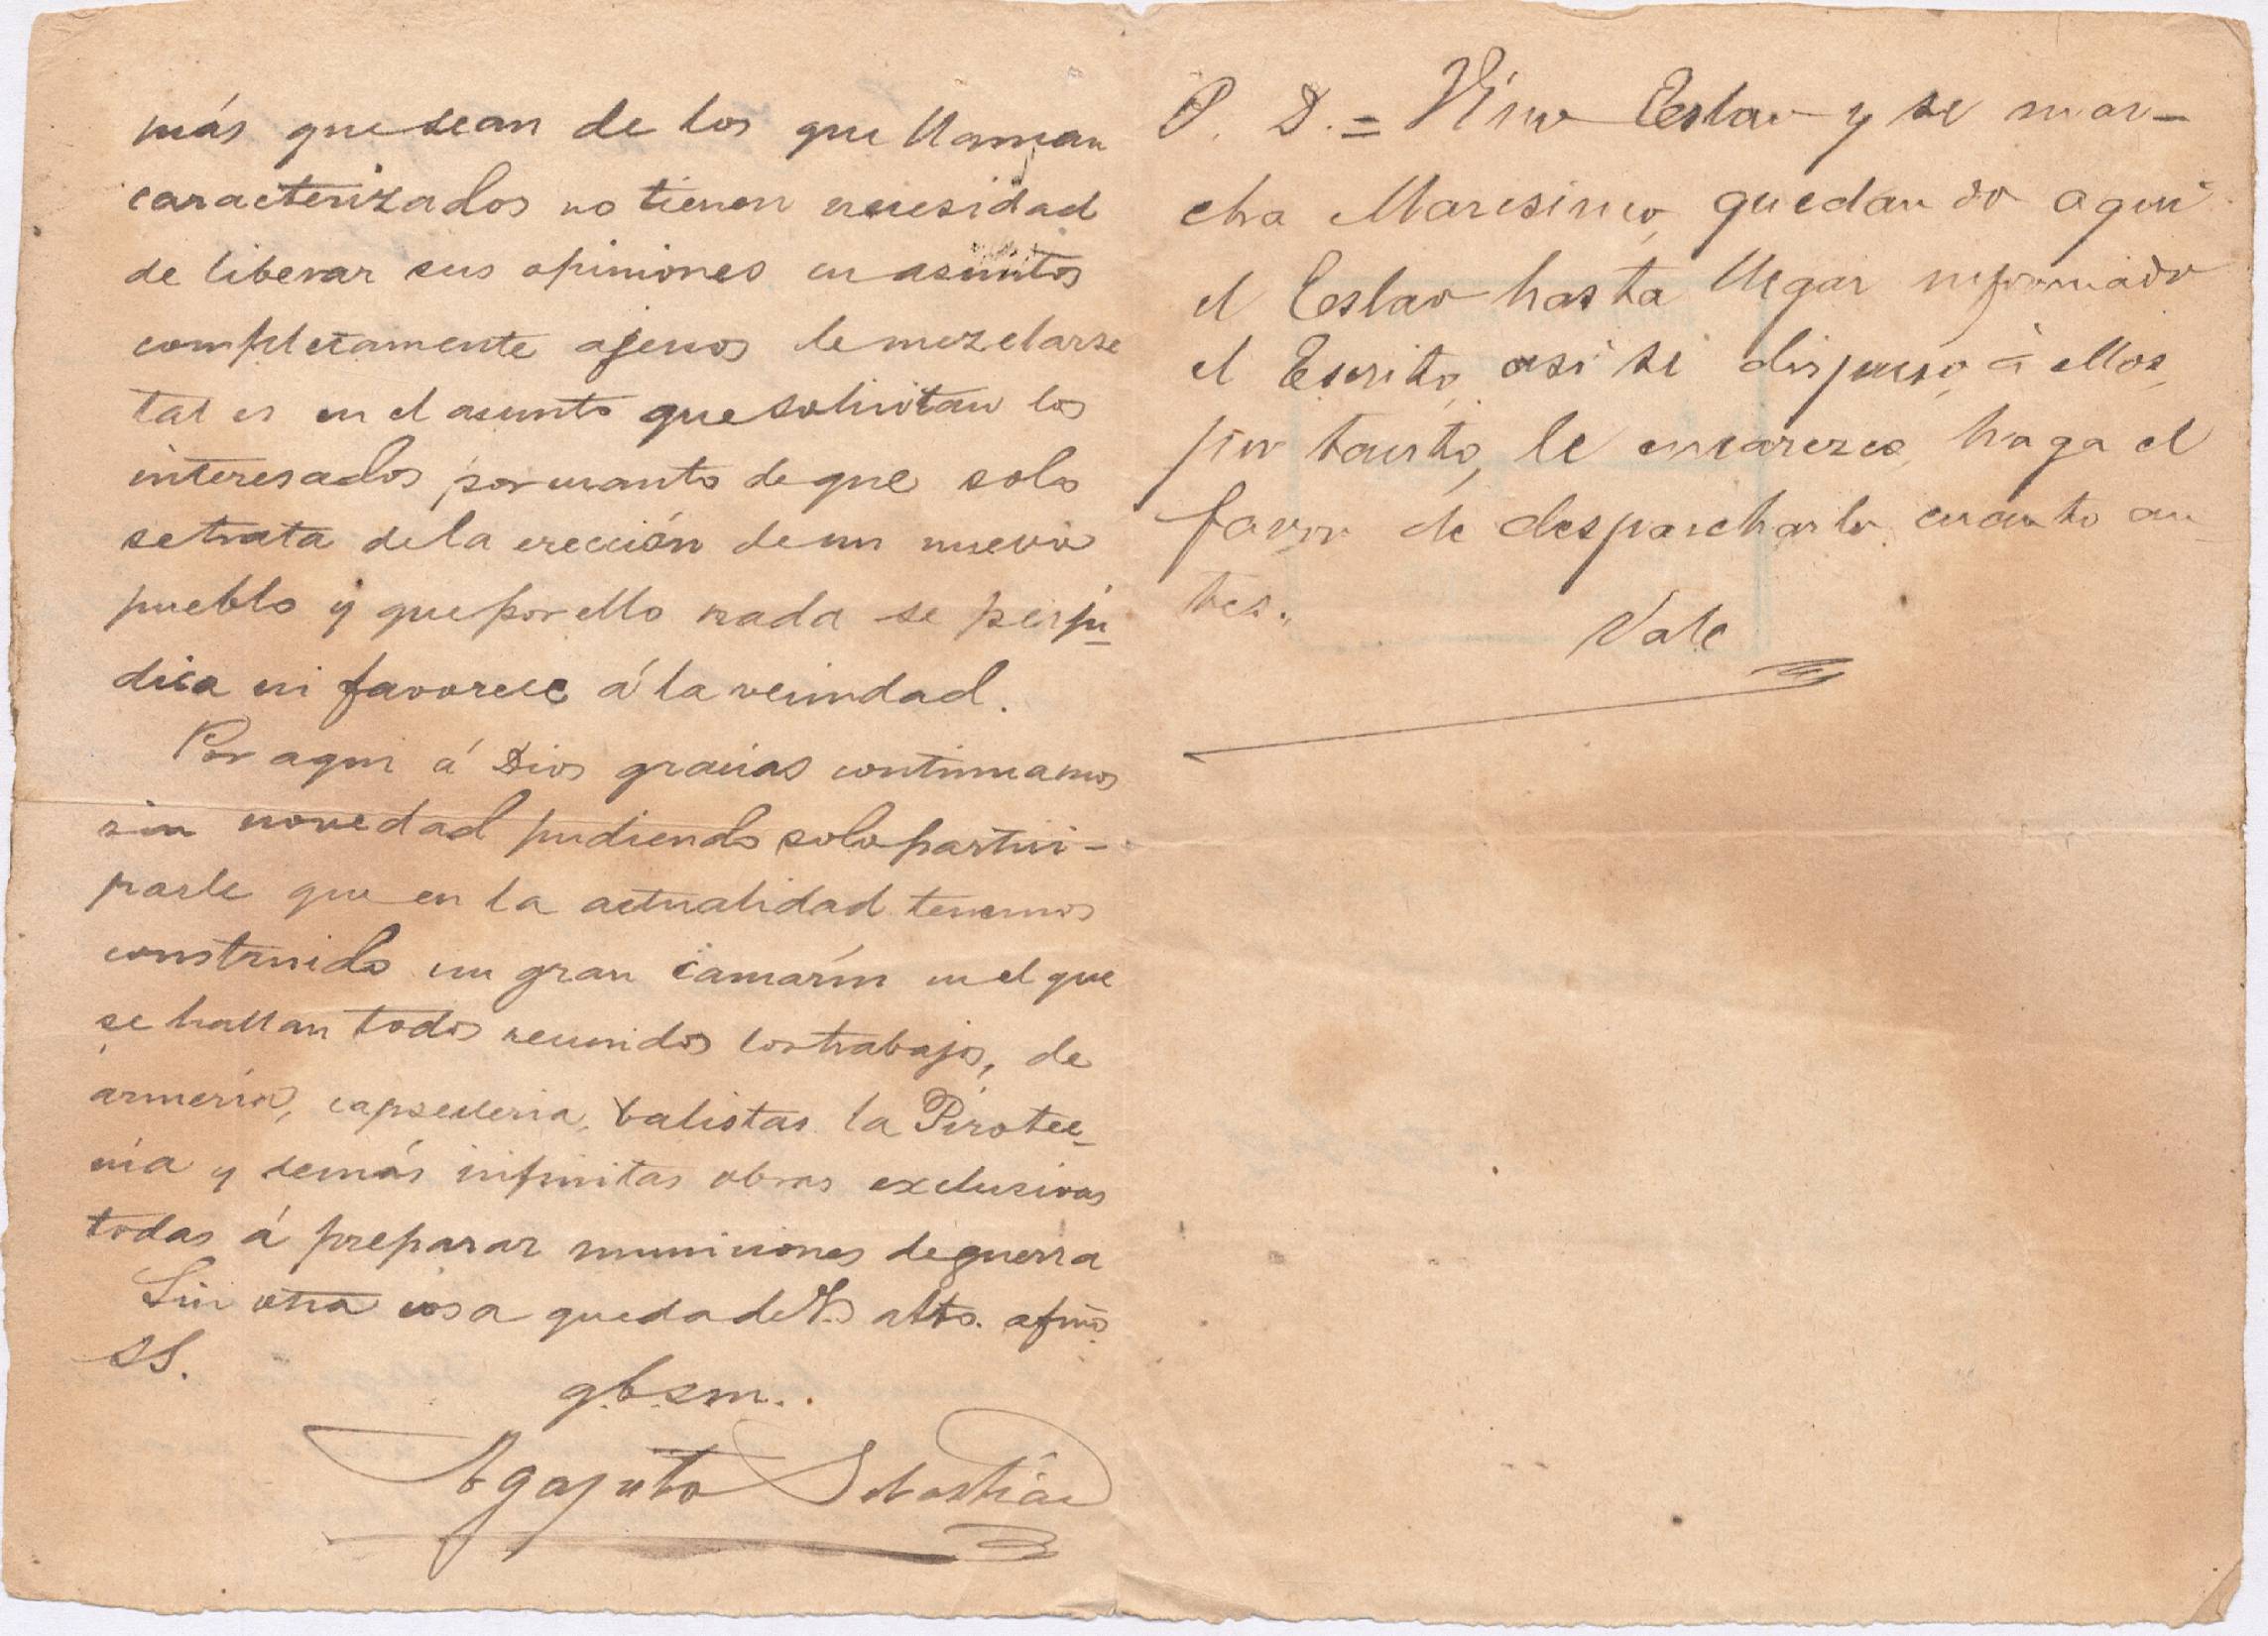 más que sean de los que llaman
caracterizados no tienen necesidad
de liberar sus opiniones en asuntos
completamente ajenos de mezclarse
tal es en el asunto que solicitan los
interesados, por cuanto de que solo
se trata de la erección de un nuevo
pueblo y que por ello nada se perju
dica ni favorece á la vecindad.
Por aqui á Dios gracias continuamos
sin novedad pudiendo solo partici-
parle que en la actualidad tenemos
construido un gran camarín en el que
se hallan todos reunidos los trabajos, de
armería, capsuleria, balistas la Pirotec-
nia y demás infinitas obras exclusivas
todas á preparar municiones de guerra
Sin otra cosa queda de V. atto. afmo.
SS.
q.b.s.m.
Agapito Sebastián
P. D. = Vino Eslao y se mar-
cha Marcsimo, quedando aqui
el Eslao hasta llegar informado
el Escrito, asi se dispuso, á ellos,
por tanto, le encarezco, haga el
favor de despascharlo cuanto an
tes.
Vale